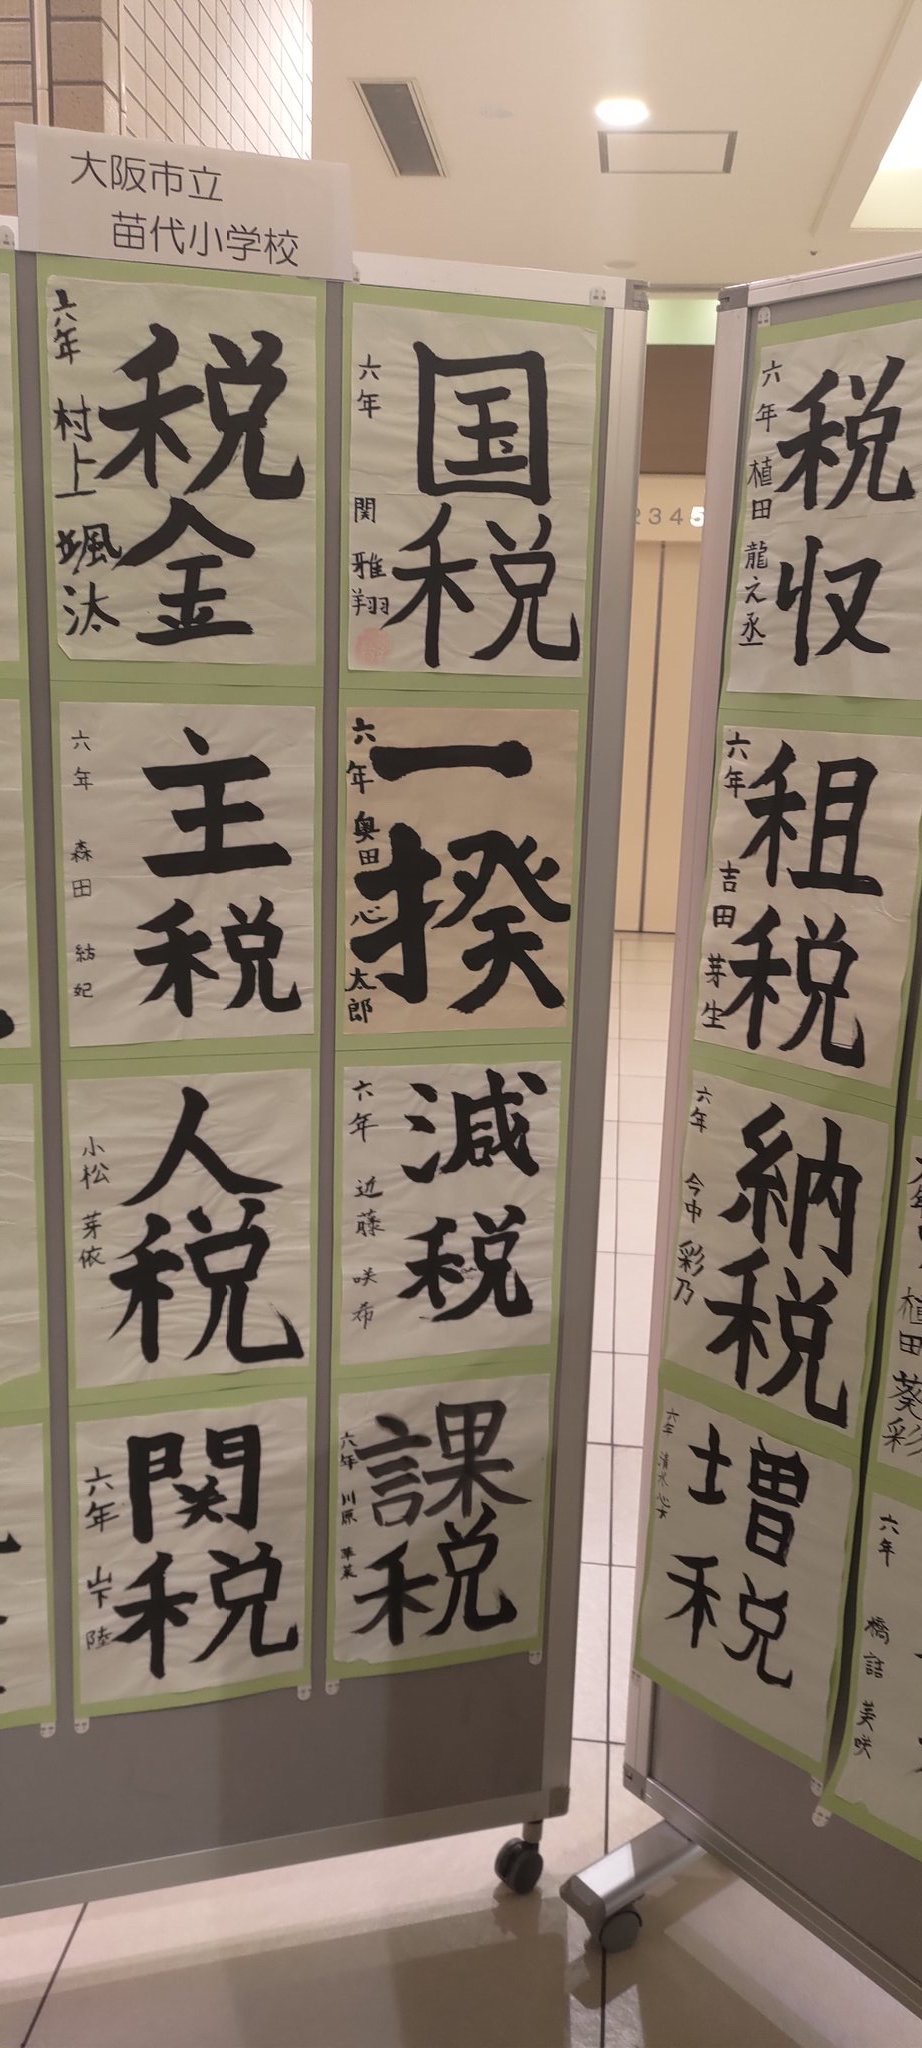 大阪市立
苗代小学校
税金
六年 村上 颯汰
国税
六年 関 雅翔
主税
六年 森田 結妃
一揆
六年 奥田 心太郎
人税
小松 芽依
減税
六年 近藤 咲希
関税
六年 山下 陸
課税
六年 川原
税収
六年 植田 龍之丞
租税
六年 吉田 芽生
納税
六年 今中 彩乃
増税
六年 清水
植田 葵彩
六年 橋詰 美咲
2345